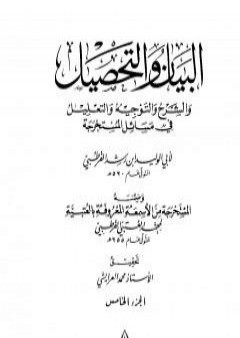 البيان والتحصيل
والشرح والتوجيه والتعليل
في مسائل المستخرجة
لأبي الوليد ابن رشد القرطبي
المتوفى عام ٥٢٠ هـ
وضمنه
المستخرجة من الأسمعة المعروفة بالعتبية
لمحمد العتبي القرطبي
المتوفى عام ٢٥٥ هـ
تحقيق
الأستاذ محمد العرايشي
الجزء الخامس